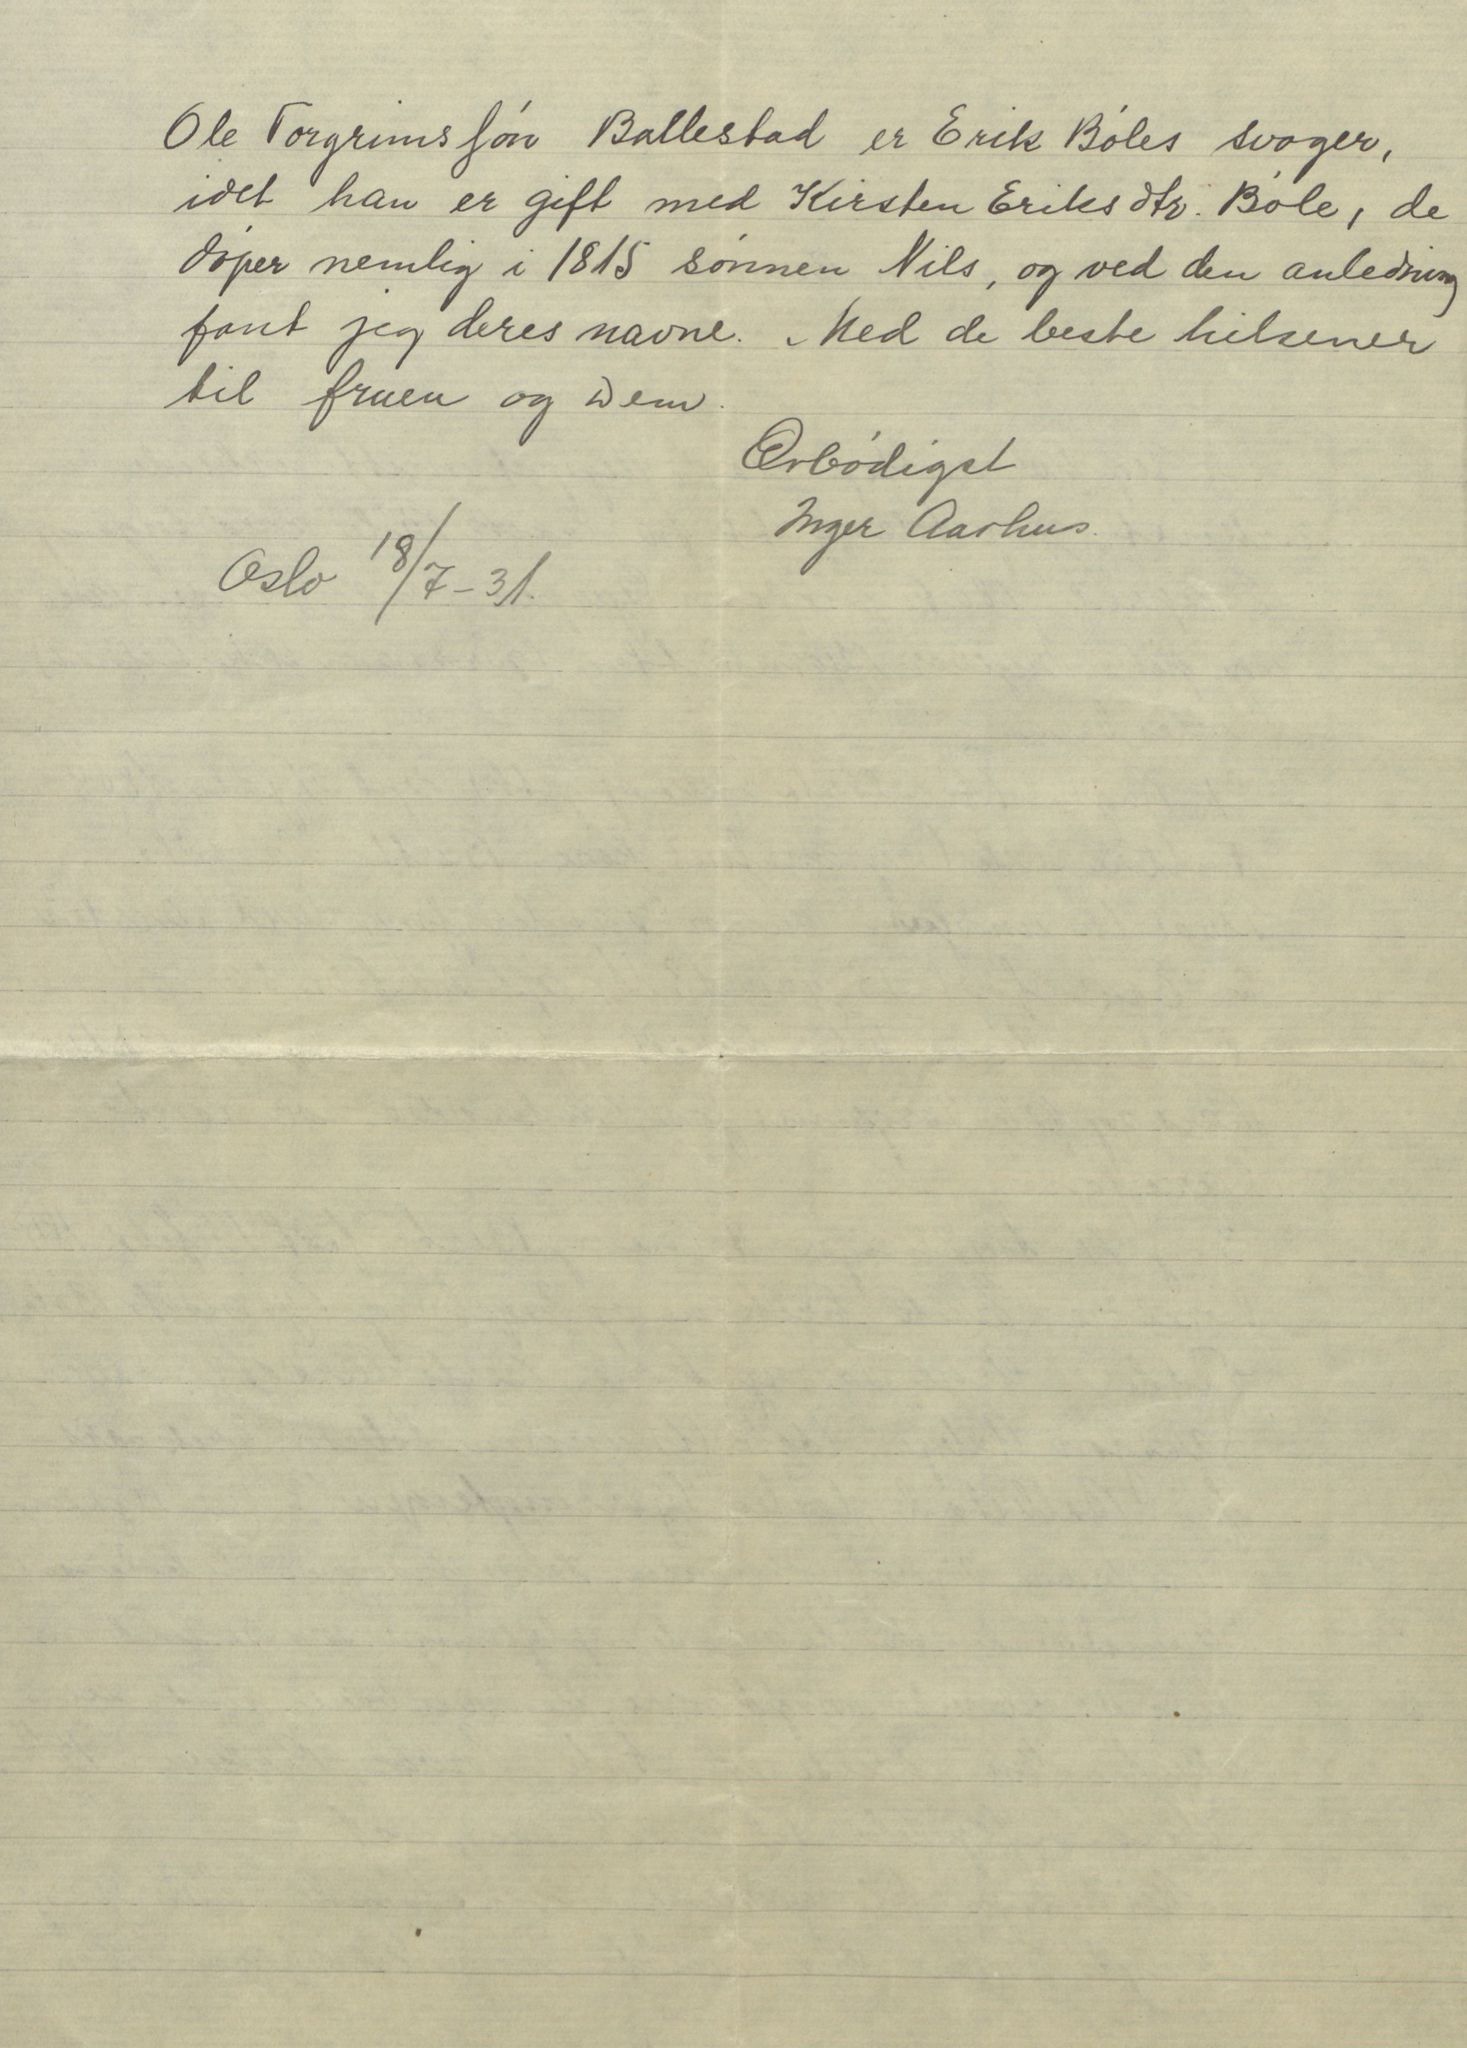 Ole Torgrimssøn Ballestad er Erik Bøles svoger,
idet han er gift med Kirsten Eriksdtr. Bøle, de
døper nemlig i 1815 sønnen Nils, og ved den anledning
fant jeg deres navne. Med de beste hilsener
til fruen og Dem.
Ærbødigst
Inger Aarhus.
Oslo 18/7-31.